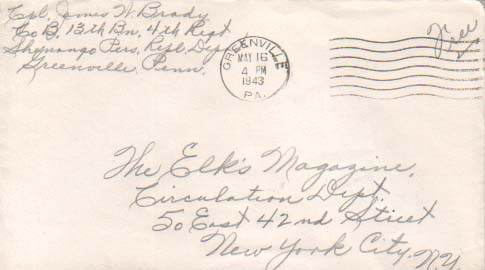 Cpl. James W. Brady
Co B, 13th Bn, 4th Regt
Shenango Pers. Repl. Depot
Greenville, Penn.
GREENVILLE
MAY 16
4 PM
1943
PA.
Free
The Elk's Magazine,
Circulation Dept.
50 East 42nd Street
New York City, N.Y.